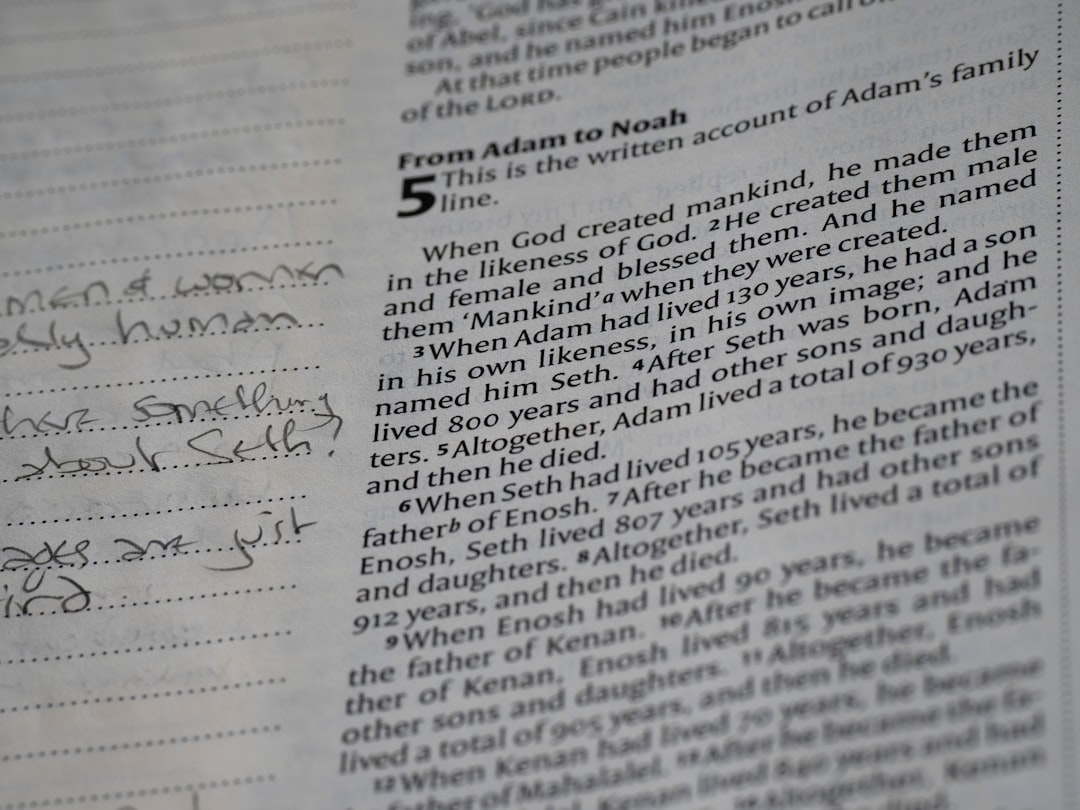 men & woman
human
have something
about Seth?
ages are just
ing, 'God has
of Abel, since Cain
son, and he named him Enosh
At that time people began to call
of the LORD.
From Adam to Noah
5 This is the written account of Adam's family
line.
When God created mankind, he made them
in the likeness of God. 2 He created them male
and female and blessed them. And he named
them 'Mankind'a when they were created.
3 When Adam had lived 130 years, he had a son
in his own likeness, in his own image; and he
named him Seth. 4 After Seth was born, Adam
lived 800 years and had other sons and daugh-
ters. 5 Altogether, Adam lived a total of 930 years,
and then he died.
6 When Seth had lived 105 years, he became the
fatherb of Enosh. 7 After he became the father of
Enosh, Seth lived 807 years and had other sons
and daughters. 8 Altogether, Seth lived a total of
912 years, and then he died.
9 When Enosh had lived 90 years, he became
the father of Kenan. 10 After he became the fa-
ther of Kenan, Enosh lived 815 years and had
other sons and daughters. 11 Altogether, Enosh
lived a total of 905 years, and then he died.
12 When Kenan had lived 70 years, he became
father of Mahalalel. 13 After he became the fa-
Kenan lived 840 years and had
Altogether, Kenan